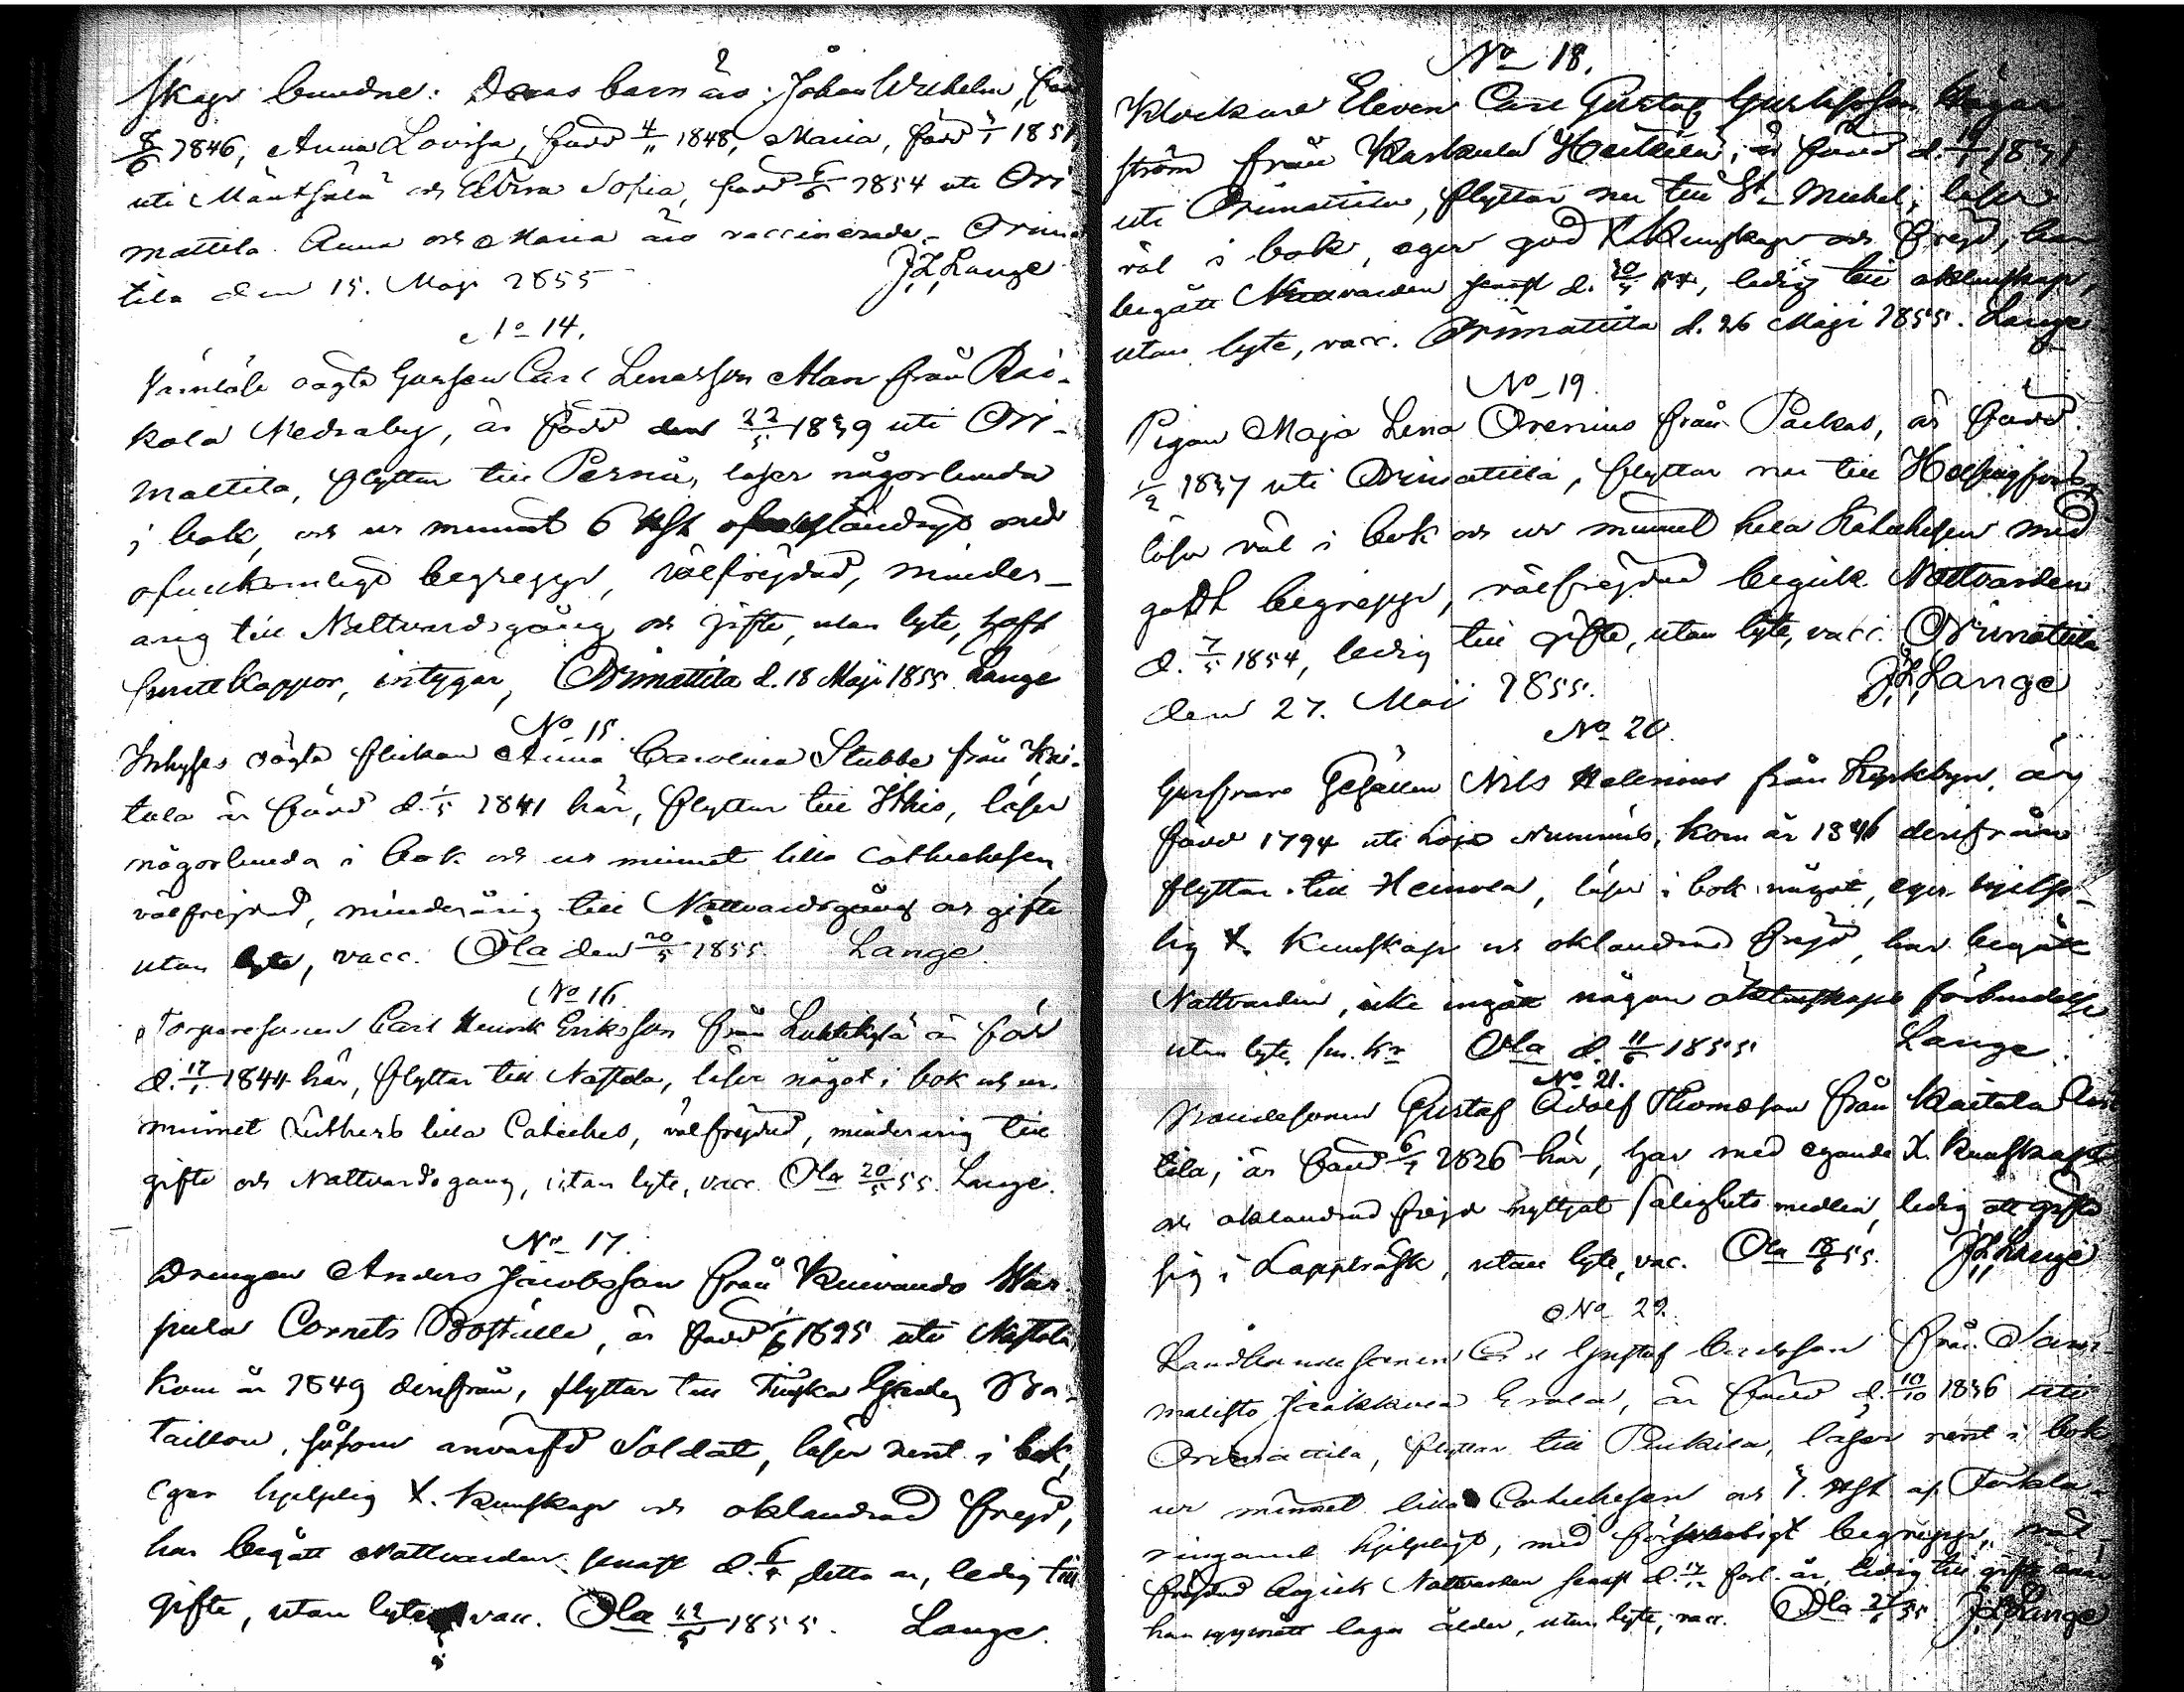 skap bundne. Deras barn äro: Johan Wilhelm, född
8/6 1846, Anna Lovisa, född 4/11 1848, Maria, född 1851
uti Mäntsälä och Sofia, född 1854 uti Ori-
mattila. Anna och Maria äro vaccinerade. Orimat-
tila den 15. Maji 1855 J. L. Lange
No 14.
vågte Gossen Carl Lenasson Man från
kola Nedraby, är född den 22/5 1839 uti Ori-
mattila, flyttar till Perno, läser någorlunda
i bok, och ur minnet 6 med
ofullkomligt begrepp, välfrejdad, minder-
årig till Nattvardsgång och gifte, utan lyte, haft
koppor, intygar, Orimattila d. 18 Maji 1855. Lange
No 15.
Inhyses vågta flickan Anna Carolina Stubbe från
tula är född d. 1/5 1841 här, flyttar till läser
någorlunda i bok och ur minnet lilla Cathechesen,
välfrejdad, minderårig till Nattvardsgång och gifte
utan lyte, vacc. Ola den 20/5 1855. Lange.
No 16.
Torparesonen Carl Henrik Eriksson från är född
d. 17/1 1844 här, flyttar till Nastola, läser något i bok och ur
minnet Lutherb lilla Cateches, välfrejdad, minderårig till
gifte och Nattvardsgang, utan lyte, vacc. Ola 20/5 55. Lange.
No 17.
Drengen Anders Jacobsson från Kuivando
pula Cornets Boställe, är född 1825 uti Nastola,
kom år 1849 derifrån, flyttar till Ba-
taillon, såsom anvärfd Soldat, läser rent i bok,
eger hjelplig X. kunskap och oklandrad frejd,
har begått Nattvarden senast d. detta år, ledig till
gifte, utan lyte vacc. Ola 22/5 1855. Lange.
No 18.
Klockare Eleven Carl Gustaf Gustafsson
ström från Heikkilä, är född d. 1831
uti Orimattila, flyttar nu till St. Michel, läser
väl i bok, eger god X. kunskap och frejd, har
begått Nattvarden senast d. ledig till äktenskap,
utan lyte, vacc. Orimattila d. 26 Maji 1855. Lange
No 19.
Pigan Maja Lena Orenius från Packas, är född
1/2 1837 uti Orimattila, flyttar nu till Helsingfors,
läser väl i bok och ur minnet hela Katekesen med
godt begrepp, välfrejdad begick Nattvarden
d. 7/5 1854, ledig till gifte, utan lyte, vacc. Orimattila
den 27. Maii 1855. J. L. Lange
No 20.
Gesällen Nils Helenius från Kyrkbyn, är
född 1794 uti Lojo Nummis, kom år 1846 derifrån
flyttar till Heinola, läser i bok något, eger hjelp-
lig X. Kunskap och oklandrad frejd, har begått
Nattvarden, icke ingått någon äktenskaps förbindelse
utan lyte, Ola d. 11/6 1855 Lange.
No 21.
Bondesonen Gustaf Adolf Thomasson från Kaitala
tila, är född 1826 här, har med egande X. kunskap
och oklandrad frejd nyttjat salighets medlen, ledig att gifta
sig i Lappträsk, utan lyte, vac. Ola 18/6 55. J. L. Lange
No 22.
Landbondesonen Gustaf från Sam-
malisto Jaakkola är född d. 10/10 1836 uti
Orimattila, flyttar till Pukila, läser rent i bok,
ur minnet lilla Catechesen och 7. af Förkla-
ringarne hjelpligt, med begrepp, väl-
frejdad begick Nattvarden senast d. förl. år, ledig till gifte
han uppnått laga ålder, utan lyte, vacc. Ola J. L. Lange